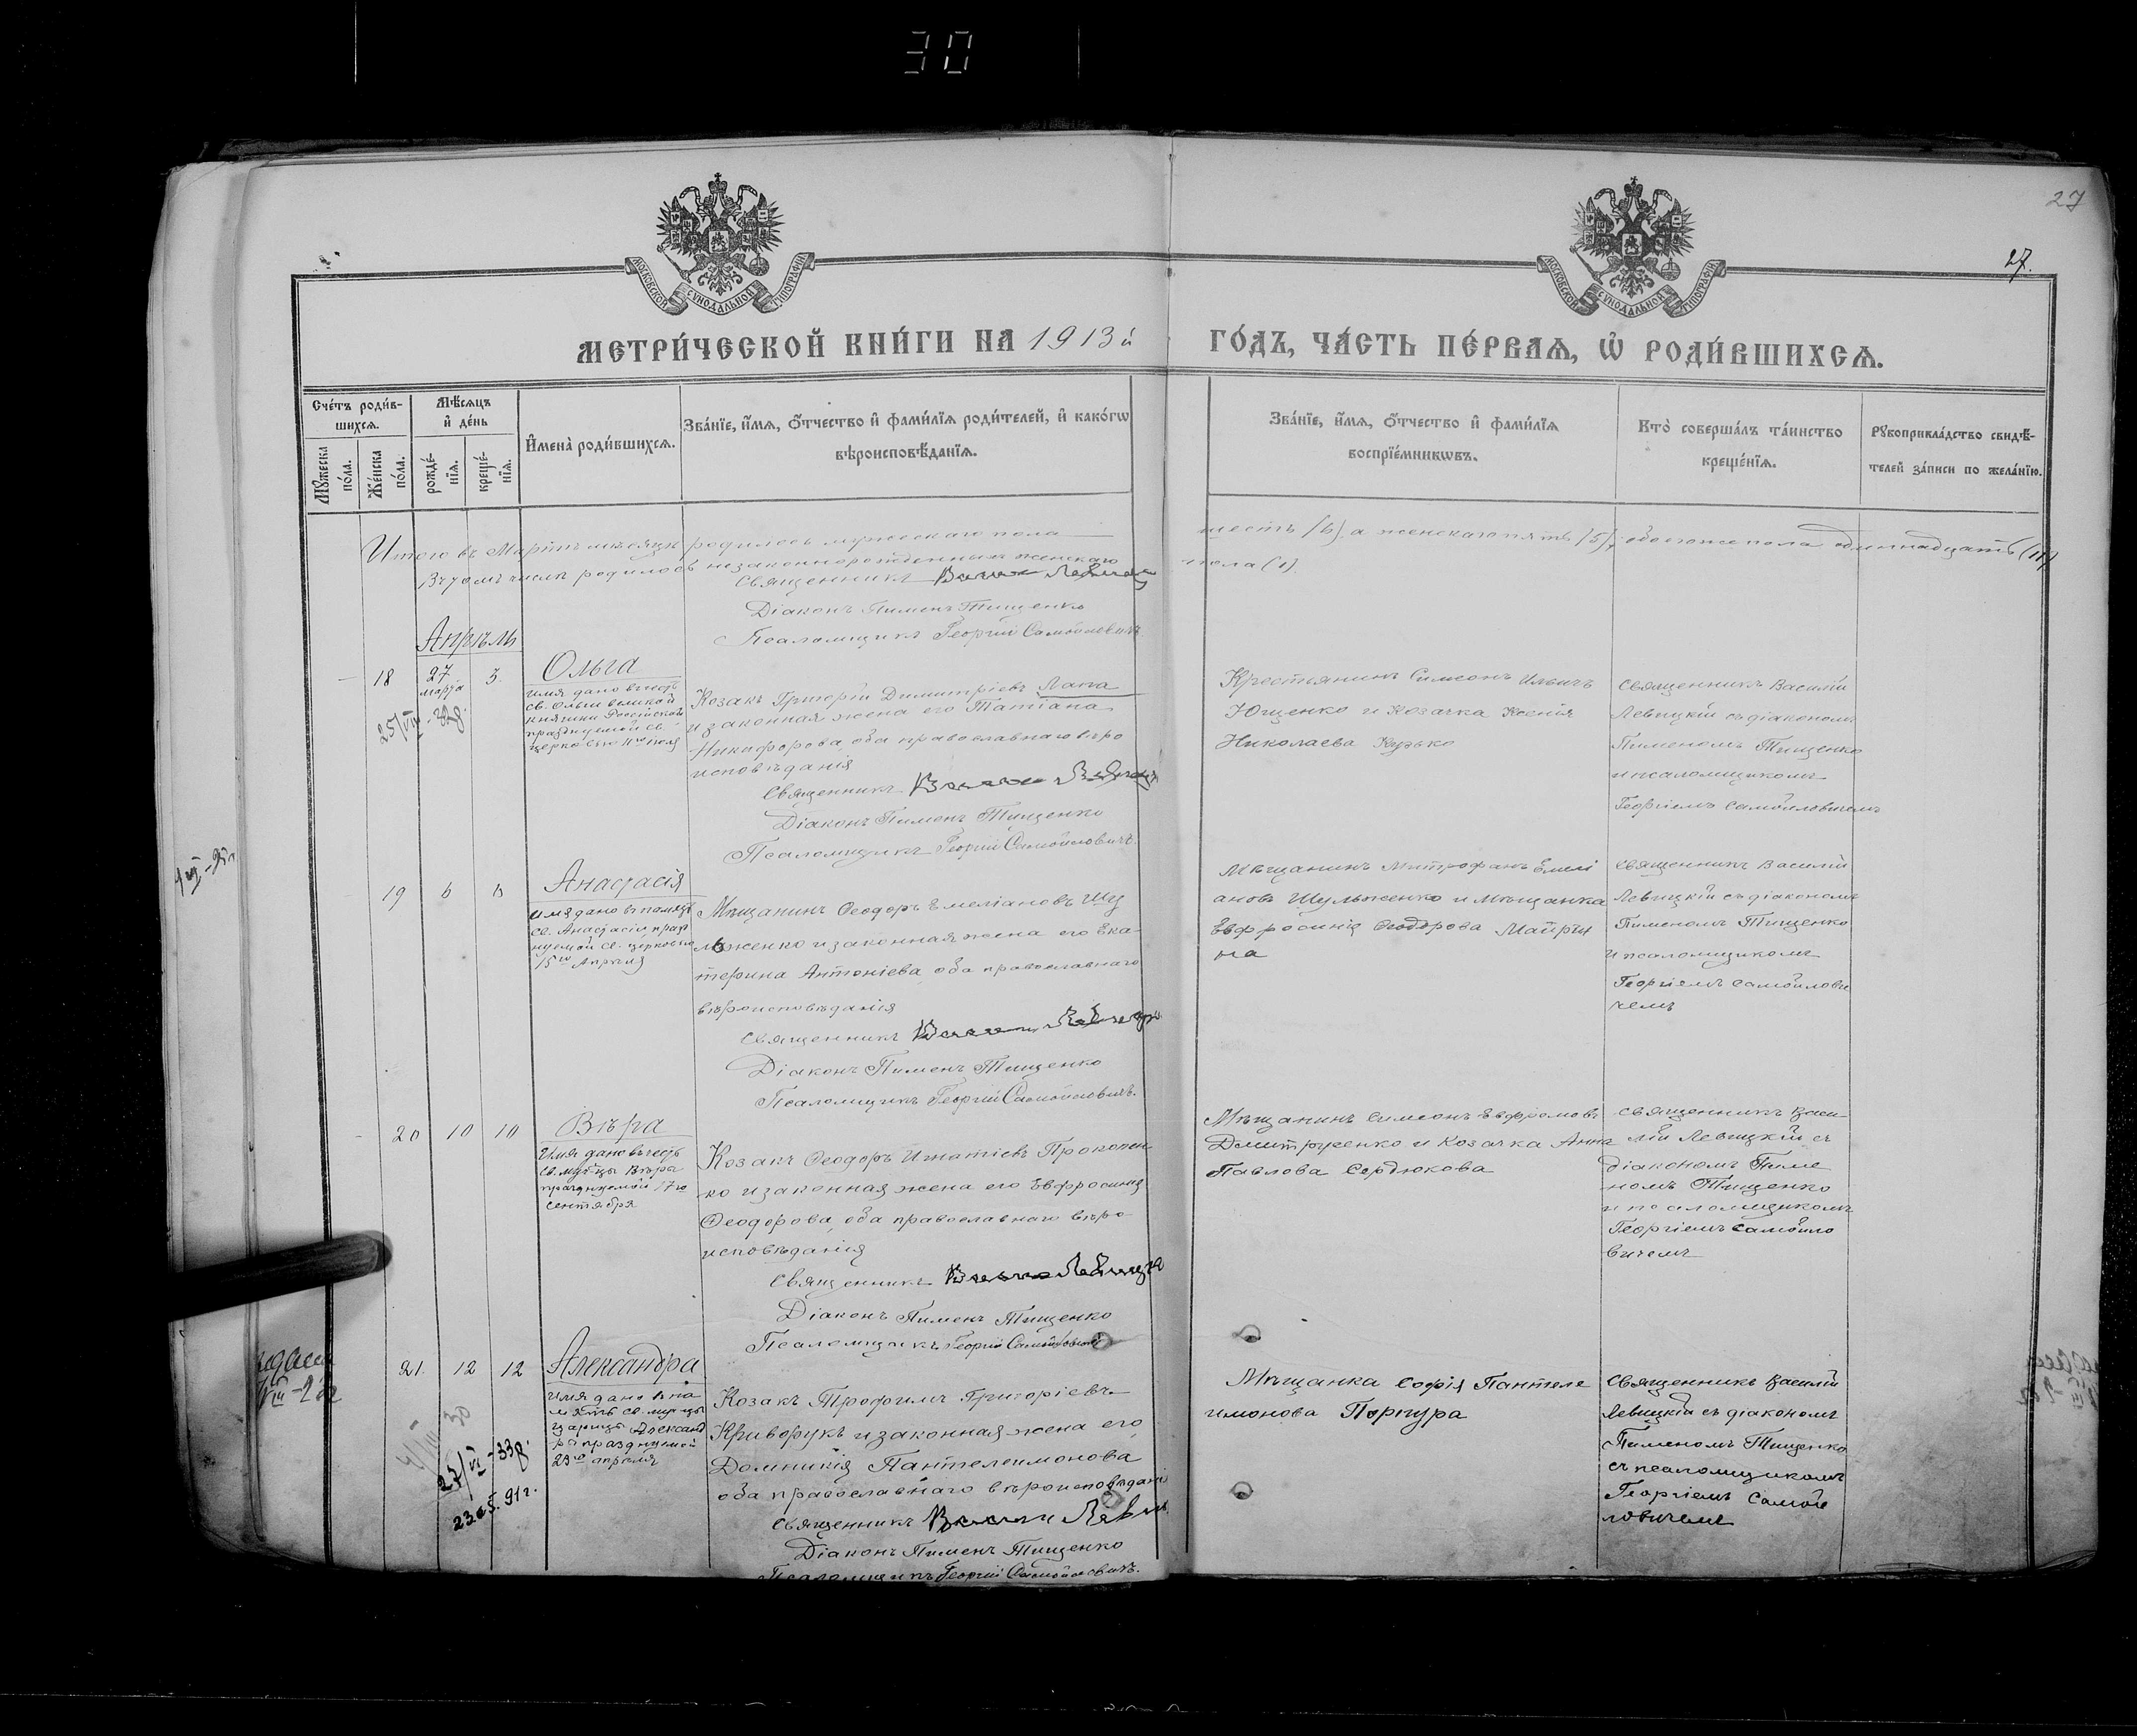 30
27
27.
МОСКОВСКОЙ СѴНОДАЛЬНОЙ ТИПОГРАФІИ
МОСКОВСКОЙ СѴНОДАЛЬНОЙ ТИПОГРАФІИ
МЕТРИ́ЧЕСКОЙ КНИ́ГИ НА 1913й ГО́ДЪ, ЧА́СТЬ ПЕ́РВАѦ, Ѡ҆ РОДИ́ВШИХСѦ.
Сче́тъ роди́в-
шихсѧ.
Мꙋжеска по́ла.
Же́нска по́ла.
Мѣ́сѧцъ
и҆ де́нь
рожде́-
нїѧ.
креще́-
нїѧ.
И҆мена̀ роди́вшихсѧ.
Зва́нїе, и҆́мѧ, о҆́тчество и҆ фами́лїѧ роди́телей, и҆ како́гѡ
вѣроисповѣ́данїѧ.
Зва́нїе, и҆́мѧ, о҆́тчество и҆ фами́лїѧ
воспрїе́мникѡвъ.
Кто̀ соверша́лъ та́инство
креще́нїѧ.
Рꙋкоприкла́дство свидѣ́-
телей за́писи по жела́нїю.
Итого въ Мартѣ мѣсяцѣ родилось мужескаго пола шесть (6), а женскаго пять (5); обоего же пола одиннадцать (11)
Въ томъ числѣ родилось незаконнорожденныхъ женскаго пола (1).
Священникъ Василій Левицкій
Діаконъ Пименъ Тищенко
Псаломщикъ Георгій Самойловичъ
Апрѣль
18 27 марта 3. Ольга
имя дано въ честь
св. Ольги великой
княгини Россійской
празднуемой св.
церковью 11го іюля
Козакъ Григорій Димитріевъ Лапа
и законная жена его Татіана
Никифорова, оба православнаго вѣро
исповѣданія
Священникъ Василій Левицкій
Діаконъ Пименъ Тищенко
Псаломщикъ Георгій Самойловичъ.
Крестьянинъ Симеонъ Ильичъ
Ющенко и Козачка Ксенія
Николаева Кузько
Священникъ Василій
Левицкій съ діакономъ
Пименомъ Тищенко
и псаломщикомъ
Георгіемъ Самойловичемъ
19 6 6 Анастасія
Имя дано въ память
св. Анастасіи празд
нуемой св. церковью
15го Апрѣля
Мѣщанинъ Ѳеодоръ Емеліановъ Шу
льженко и законная жена его Ека-
терина Антоніева, оба православнаго
вѣроисповѣданія
Священникъ Василій Левицкій
Діаконъ Пименъ Тищенко
Псаломщикъ Георгій Самойловичъ.
Мѣщанинъ Митрофанъ Емелі
ановъ Шульженко и Мѣщанка
Евфросинія Ѳеодорова
на
Священникъ Василій
Левицкій съ діакономъ
Пименомъ Тищенко
и псаломщикомъ
Георгіемъ Самойлови
чемъ
20 10 10 Вѣра
Имя дано въ честь
св. муч-цы Вѣры
празднуемой 17го
сентября
Козакъ Ѳеодоръ Игнатіевъ Прокопен
ко и законная жена его Евфросинія
Ѳеодорова, оба православнаго вѣро-
исповѣданія
Священникъ Василій Левицкій
Діаконъ Пименъ Тищенко
Псаломщикъ Георгій Самойловичъ
Мѣщанинъ Симеонъ Евфремовъ
Дмитренко и Козачка Анна
Павлова Сердюкова
Священникъ Васи-
лій Левицкій съ
діакономъ Пиме
номъ Тищенко
и псаломщикомъ
Георгіемъ Самойло
вичемъ
21. 12 12 Александра
Имя дано въ па
мять св. муч-цы
царицы Александ
ры празднуемой
23го апрѣля
Козакъ Трофимъ Григоріевъ
Криворукъ и законная жена его
Домникія Пантелеимонова
оба православнаго вѣроисповѣданія
Священникъ Василій Левицкій
Діаконъ Пименъ Тищенко
Псаломщикъ Георгій Самойловичъ.
Мѣщанка Софія Пантеле
имонова Портура
Священникъ Василій
Левицкій съ діакономъ
Пименомъ Тищенко
съ псаломщикомъ
Георгіемъ Самой
ловичемъ
23.05.91г.